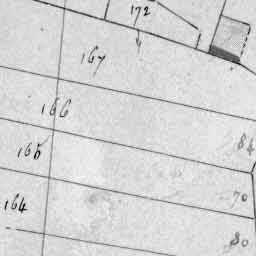 172
167
166
84
165
70
164
80